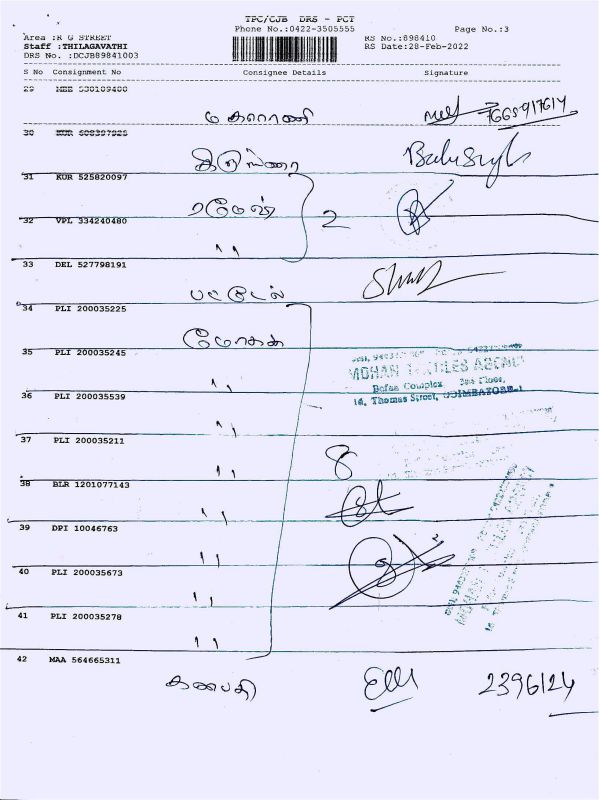 TPC/CJB DRS - PCT
Phone No.:0422-3505555 Page No.:3
Area :R G STREET RS No.:898410
Staff :THILAGAVATHI RS Date:28-Feb-2022
DRS No. :DCJB89841003
S No Consignment No Consignee Details Signature
29 MEE 530109400
மகாராணி 7665917614
30 KUR 608397925
31 KUR 525820097
ரமேஷ் 2
32 VPL 334240480
"
33 DEL 527798191
பட்டேல்
34 PLI 200035225
35 PLI 200035245
"
MOHAN TEXTILES AGENCY
Complex 3rd Floor,
16, Thomas Street, COIMBATORE-1
36 PLI 200035539
"
37 PLI 200035211
" 8
38 BLR 1201077143
"
39 DPI 10046763
"
40 PLI 200035673
"
41 PLI 200035278
"
42 MAA 564665311
கணபதி 2396124